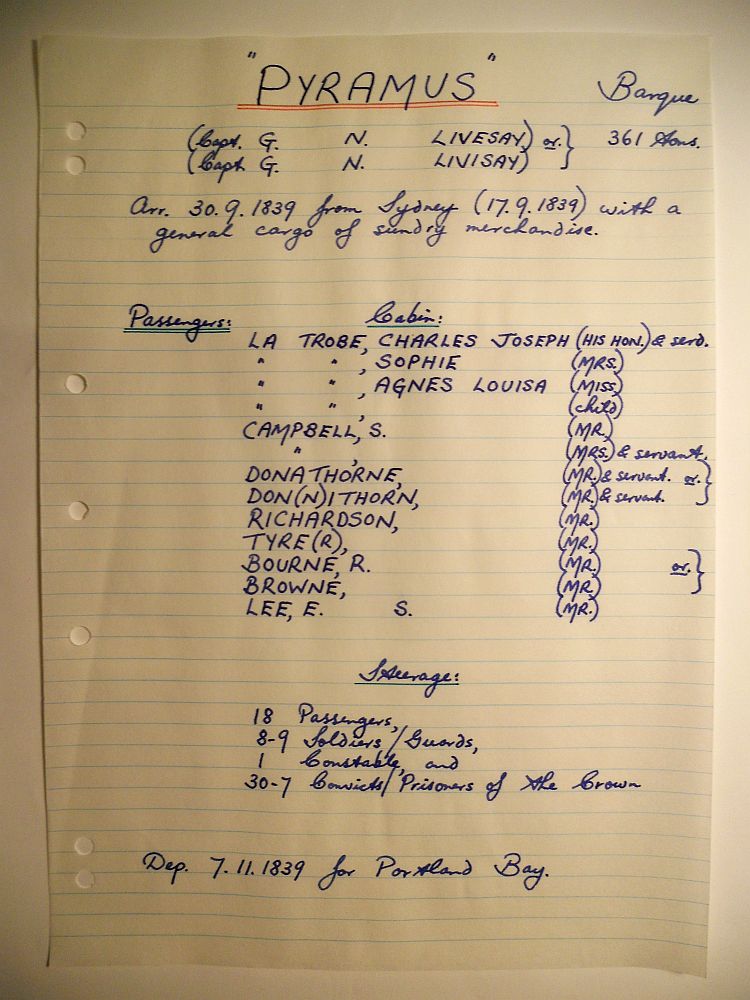 "PYRAMUS" Barque
(Capt. G. N. LIVESAY) or. } 361 tons.
(Capt G. N. LIVISAY)
Arr. 30.9.1839 from Sydney (17.9.1839) with a
general cargo of sundry merchandise.
Passengers: Cabin:
LA TROBE, CHARLES JOSEPH (HIS HON.) & serv.
" " , SOPHIE (MRS.)
" " , AGNES LOUISA (MISS)
" " , (child)
CAMPBELL, S. (MR.)
" , (MRS.) & servant.
DONATHORNE, (MR.) & servant. or. }
DON(N)ITHORN, (MR.) & servant.
RICHARDSON, (MR.)
TYRE(R), (MR.)
BOURNE, R. (MR.) or. }
BROWNE, (MR.)
LEE, E. S. (MR.)
Steerage:
18 Passengers,
8-9 Soldiers/Guards,
1 Constable, and
30-7 Convicts/Prisoners of the Crown
Dep. 7.11.1839 for Portland Bay.